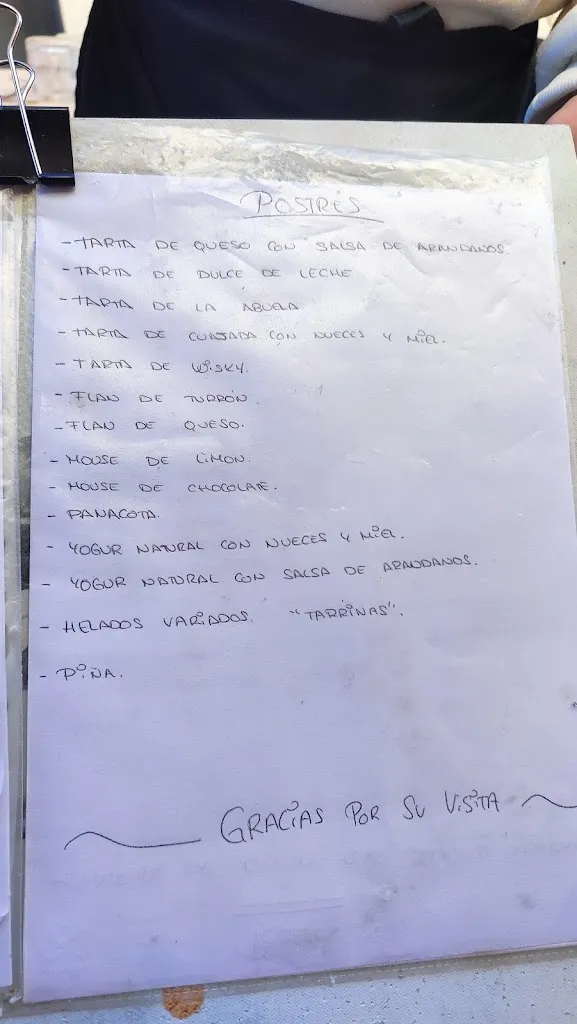 POSTRES
- TARTA DE QUESO CON SALSA DE ARANDANOS.
- TARTA DE DULCE DE LECHE
- TARTA DE LA ABUELA.
- TARTA DE CUAJADA CON NUECES Y MIEL.
- TARTA DE WISKY.
- FLAN DE TURRÓN.
- FLAN DE QUESO.
- MOUSE DE LIMON.
- MOUSE DE CHOCOLATE.
- PANACOTA.
- YOGUR NATURAL CON NUECES Y MIEL.
- YOGUR NATURAL CON SALSA DE ARANDANOS.
- HELADOS VARIADOS. "TARRINAS".
- PIÑA.
GRACIAS POR SU VISITA